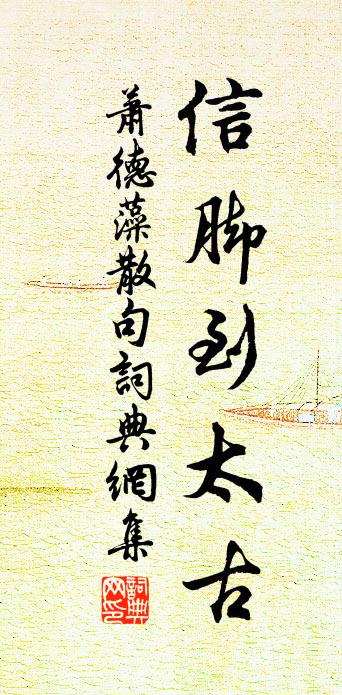 信脚到太古
萧德藻散句詞典網集
詞典網印